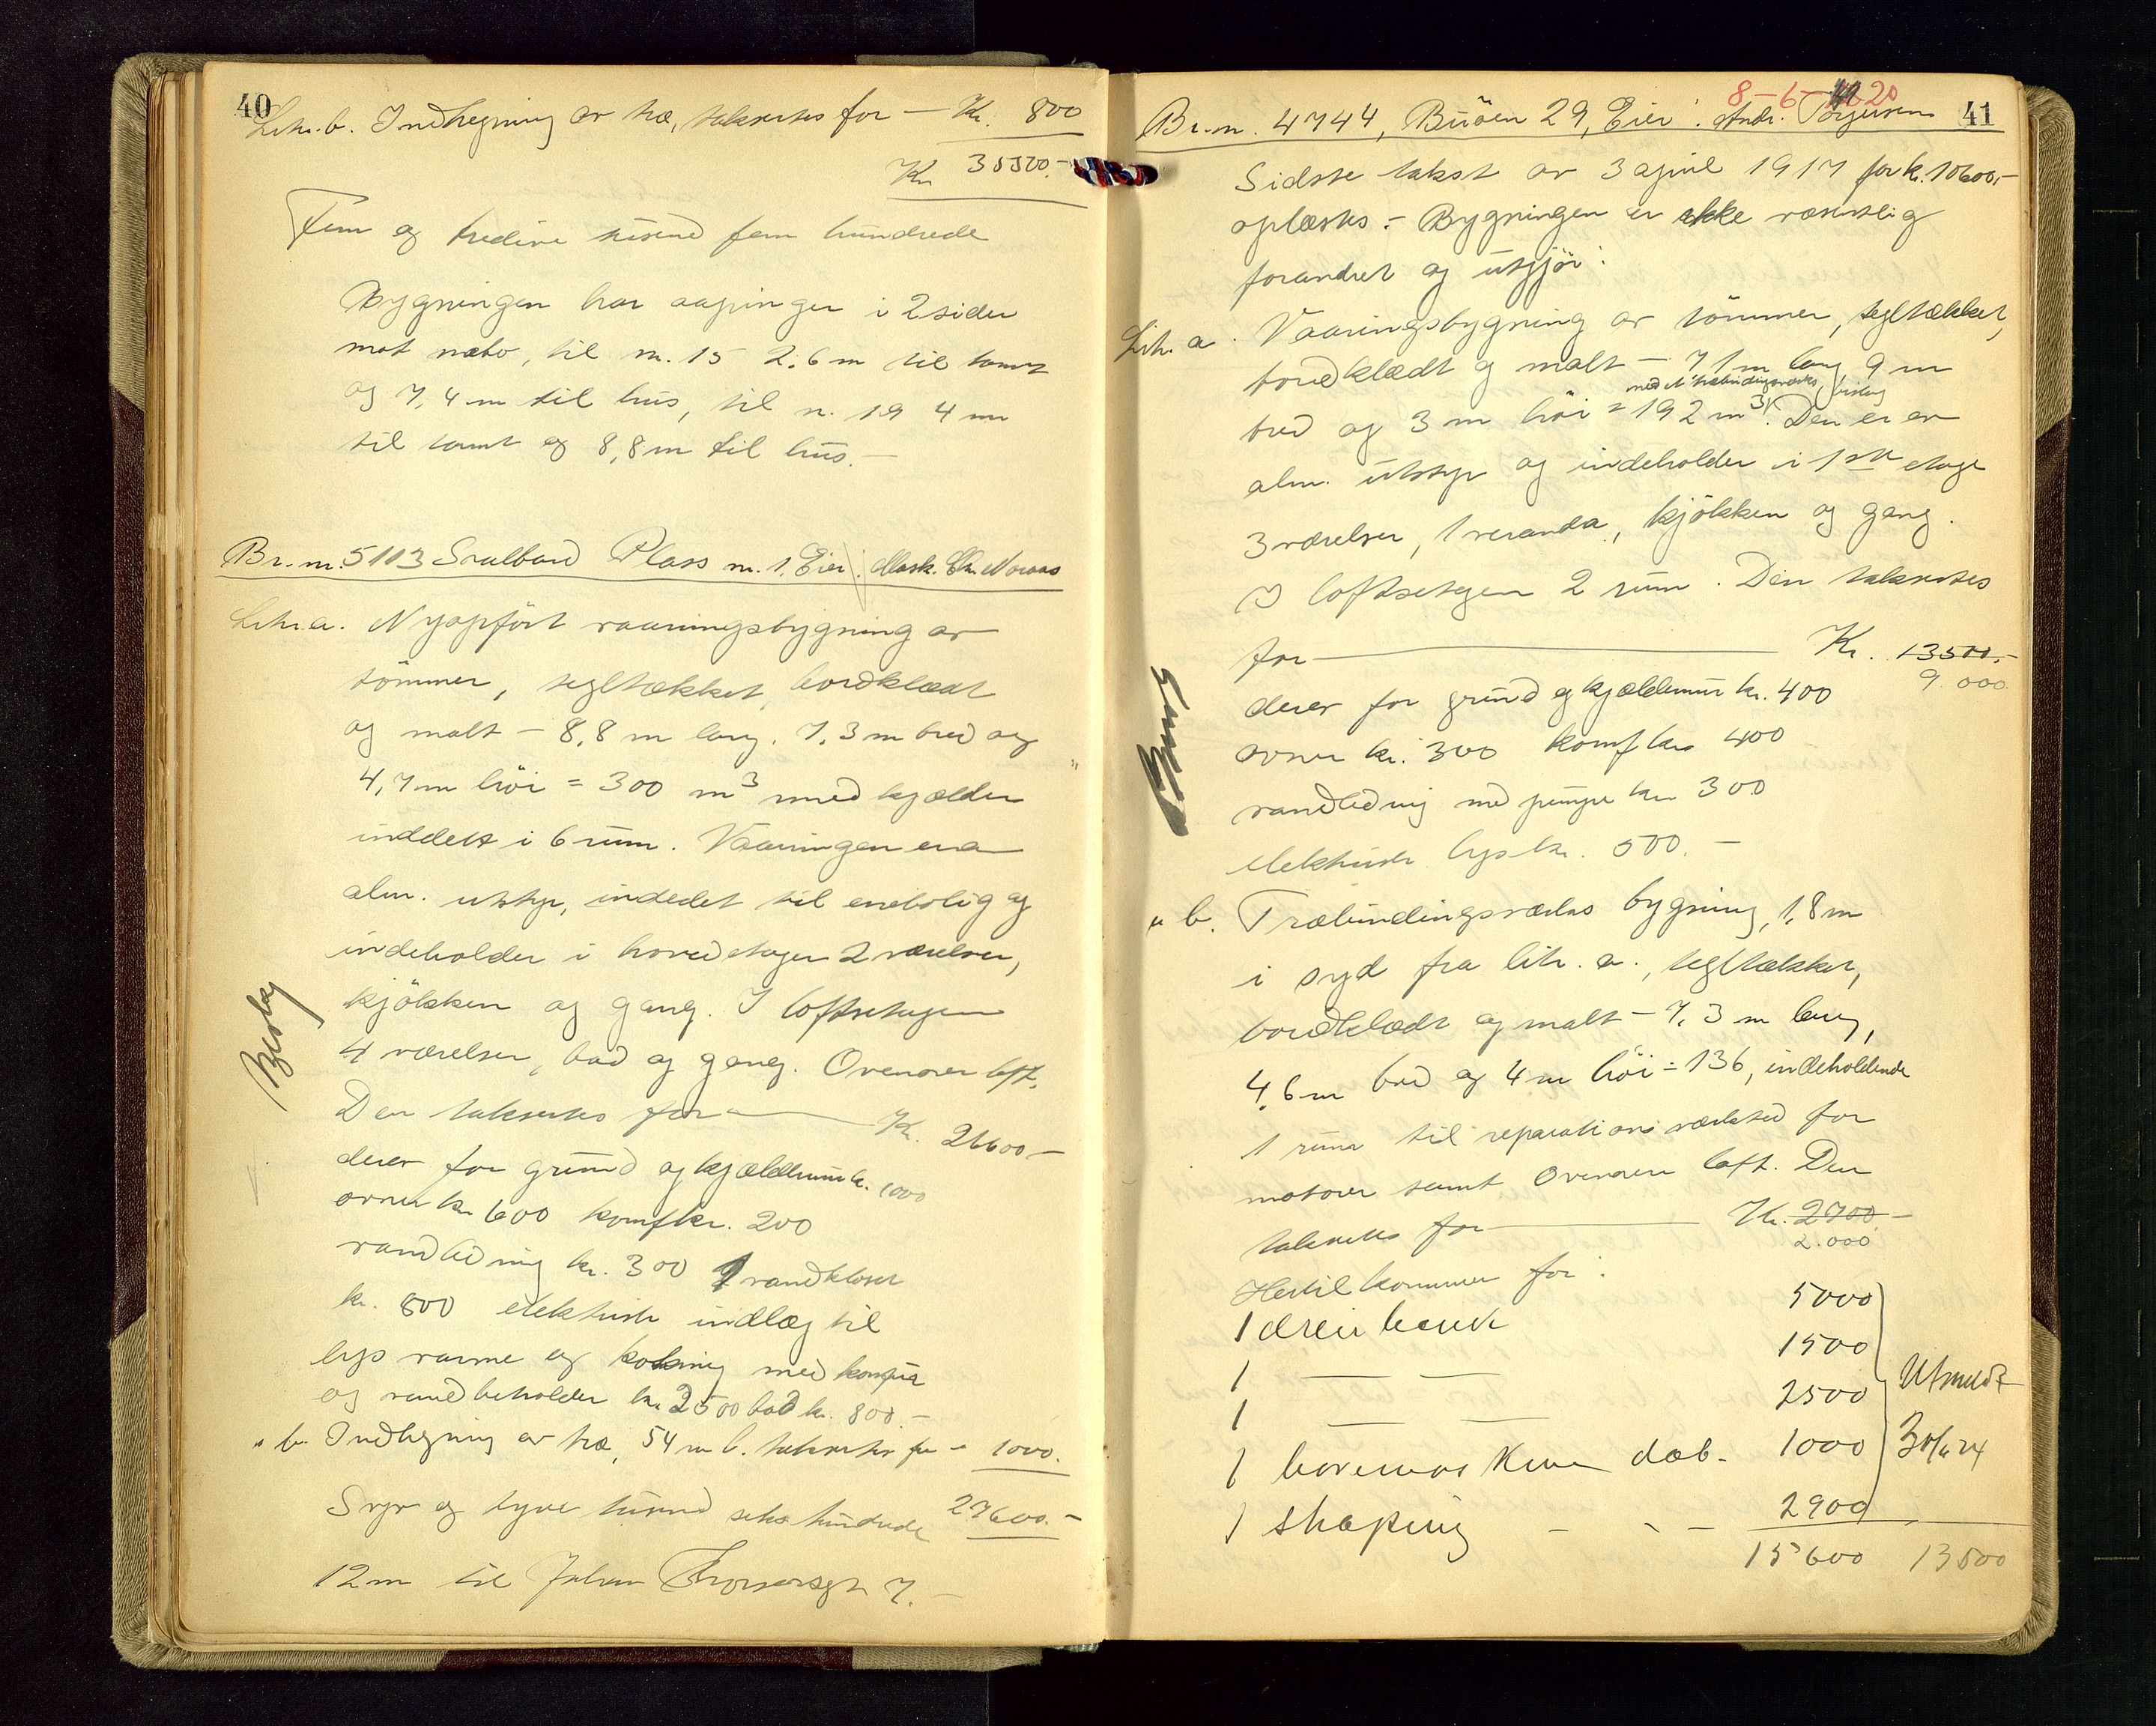 40
Litr. b. Indhegning av træ, taksertes for — Kr. 800
Kr. 35500.-
Fem og tredive tusend fem hundrede
Bygningen har aapninger i 2 sider
mot nabo, til nr. 15 2.6 m til tomt
og 7,4 m til hus, til nr. 19 4 m
til tomt og 8,8 m til hus. -
Br. nr. 5103 Svalbard Plass nr. 1. Eier: Mask.
Litr. a. Nyopført vaaningsbygning av
tømmer, tegltækket, bordklædt
og malt - 8,8 m lang, 7,3 m bred og
4,7 m høi = 300 m³ med kjælder
inddelt i 6 rum. Vaaningen er a
alm. utstyr, inddelet til enebolig og
indeholder i hovedetagen 2 værelser,
kjøkken og gang. I loftsetagen
4 værelser, bad og gang. Ovenover loft.
Den taksertes for — Kr. 26600.-
derav for grund og kjældermur kr. 1000
ovner kr. 600 komf kr. 200
vandledning kr. 300 1 vandkloset
kr. 800 elektrisk indlæg til
lys varme og kokning med komfur
og vandbeholder kr. 2500 bad kr. 800.-
" b. Indhegning av træ, 54 m l. taksertes for - 1000.
Syv og tyve tusend seks hundrede 27600.-
12 m til Johan Thorsensgt 7. -
8-6-20
Br. nr. 4744, Buøen 29, Eier: Andr. Torjusen 41
Sidste takst av 3 april 1917 for kr. 10600,-
oplæstes. - Bygningen er ikke væsentlig
forandret og utgjør:
Litr. a. Vaaningsbygning av tømmer, tegltækket,
bordklædt og malt - 7,1 m lang, 9 m
med et træbindingsverks bislag
bred og 3 m høi = 192 m³. Den er av
alm. utstyr og indeholder i 1ste etage
3 værelser, 1 veranda, kjøkken og gang.
I loftsetagen 2 rum. Den taksertes
for — Kr. 13500.-
9 000
derav for grund og kjældermur kr. 400
ovner kr. 300 komf kr. 400
vandledning med pumpe kr. 300
elektrisk lys kr. 500. -
" b. Træbindingsverks bygning, 1,8 m
i syd fra litr. a., tegltækket,
bordklædt og malt - 7,3 m lang,
4,6 m bred og 4 m høi = 136, indeholdende
1 rum til reparationsværksted for
motorer samt ovenover loft. Den
taksertes for — Kr. 2700.-
2.000
Hertil kommer for:
1 dreiebenk 5000
1 — — 1500
1 — — 2500 Utmeldt
1 boremaskine do. 1000 30/6 24
1 shaping - - - 2900
15600 13500